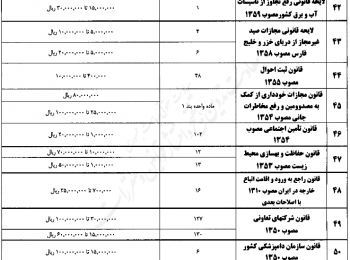 ۴۲ لایحه قانونی رفع تجاوز از تاسیسات ۱ ۱۵,۰۰۰,۰۰۰ تا ۳۰,۰۰۰,۰۰۰ ریال
آب و برق کشور مصوب ۱۳۵۹
۴۳ لایحه قانونی مجازات صید ۴ ۵,۰۰۰,۰۰۰ تا ۱۰,۰۰۰,۰۰۰ ریال
غیرمجاز از دریای خزر و خلیج
فارس مصوب ۱۳۵۸ ۶ ۵,۰۰۰,۰۰۰ تا ۲۰,۰۰۰,۰۰۰ ریال
۴۴ قانون ثبت احوال ۳۸ ۴۰۰,۰۰۰ تا ۱۰,۰۰۰,۰۰۰
مصوب ۱۳۵۵
۴۵ قانون مجازات خودداری از کمک ماده واحده بند ۱ ۸۰,۰۰۰,۰۰۰ ریال
به مصدومین و رفع مخاطرات
جانی مصوب ۱۳۵۴ ۲۵,۰۰۰,۰۰۰ تا ۱۰۰,۰۰۰,۰۰۰ ریال
۴۶ قانون تأمین اجتماعی مصوب ۱۰۲ ۱,۰۰۰,۰۰۰ تا ۲۰,۰۰۰,۰۰۰ ریال
۱۳۵۴
۴۷ قانون حفاظت و بهسازی محیط ۱۲ ۱۰,۰۰۰,۰۰۰ تا ۷۰,۰۰۰,۰۰۰ ریال
زیست مصوب ۱۳۵۳ ۱۳ ۱,۰۰۰,۰۰۰ تا ۵۰,۰۰۰,۰۰۰ ریال
۴۸ قانون راجع به ورود و اقامت اتباع ۱۶ ۷۰۰,۰۰۰ تا ۲۵,۰۰۰,۰۰۰ ریال
خارجه در ایران مصوب ۱۳۱۰
با اصلاحات بعدی
۴۹ قانون شرکتهای تعاونی ۱۲۷ ۳۰,۰۰۰,۰۰۰ تا ۱۰۰,۰۰۰,۰۰۰ ریال
مصوب ۱۳۵۰ ۱۳۰ ۱۵,۰۰۰,۰۰۰ تا ۶۰,۰۰۰,۰۰۰ ریال
۵۰ قانون سازمان دامپزشکی کشور ۶ ۱۵,۰۰۰,۰۰۰ تا ۱۰۰,۰۰۰,۰۰۰ ریال
مصوب ۱۳۵۰